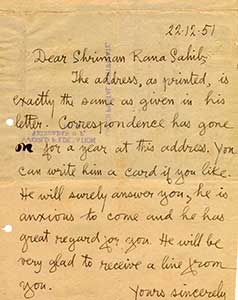 22-12-51
Dear Shriman Rana Sahib,
The address, as printed, is
exactly the same as given in his
letter. Correspondence has gone
on for a year at this address. You
can write him a card if you like.
He will surely answer you, he is
anxious to come and he has
great regard for you. He will be
very glad to receive a line from
you.
Yours sincerely